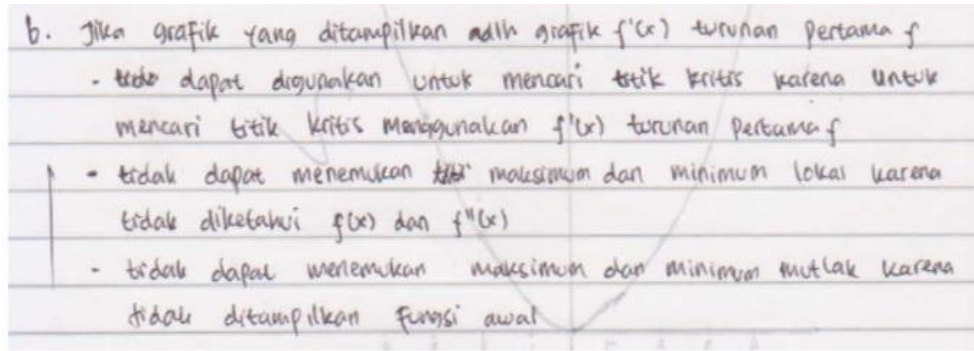 b. Jika grafik yang ditampilkan adlh grafik f'(x) turunan pertama f
- dapat digunakan untuk mencari titik kritis karena untuk
mencari titik kritis menggunakan f'(x) turunan pertama f
- tidak dapat menemukan maksimum dan minimum lokal karena
tidak diketahui f(x) dan f"(x)
- tidak dapat menemukan maksimum dan minimum mutlak karena
tidak ditampilkan fungsi awal